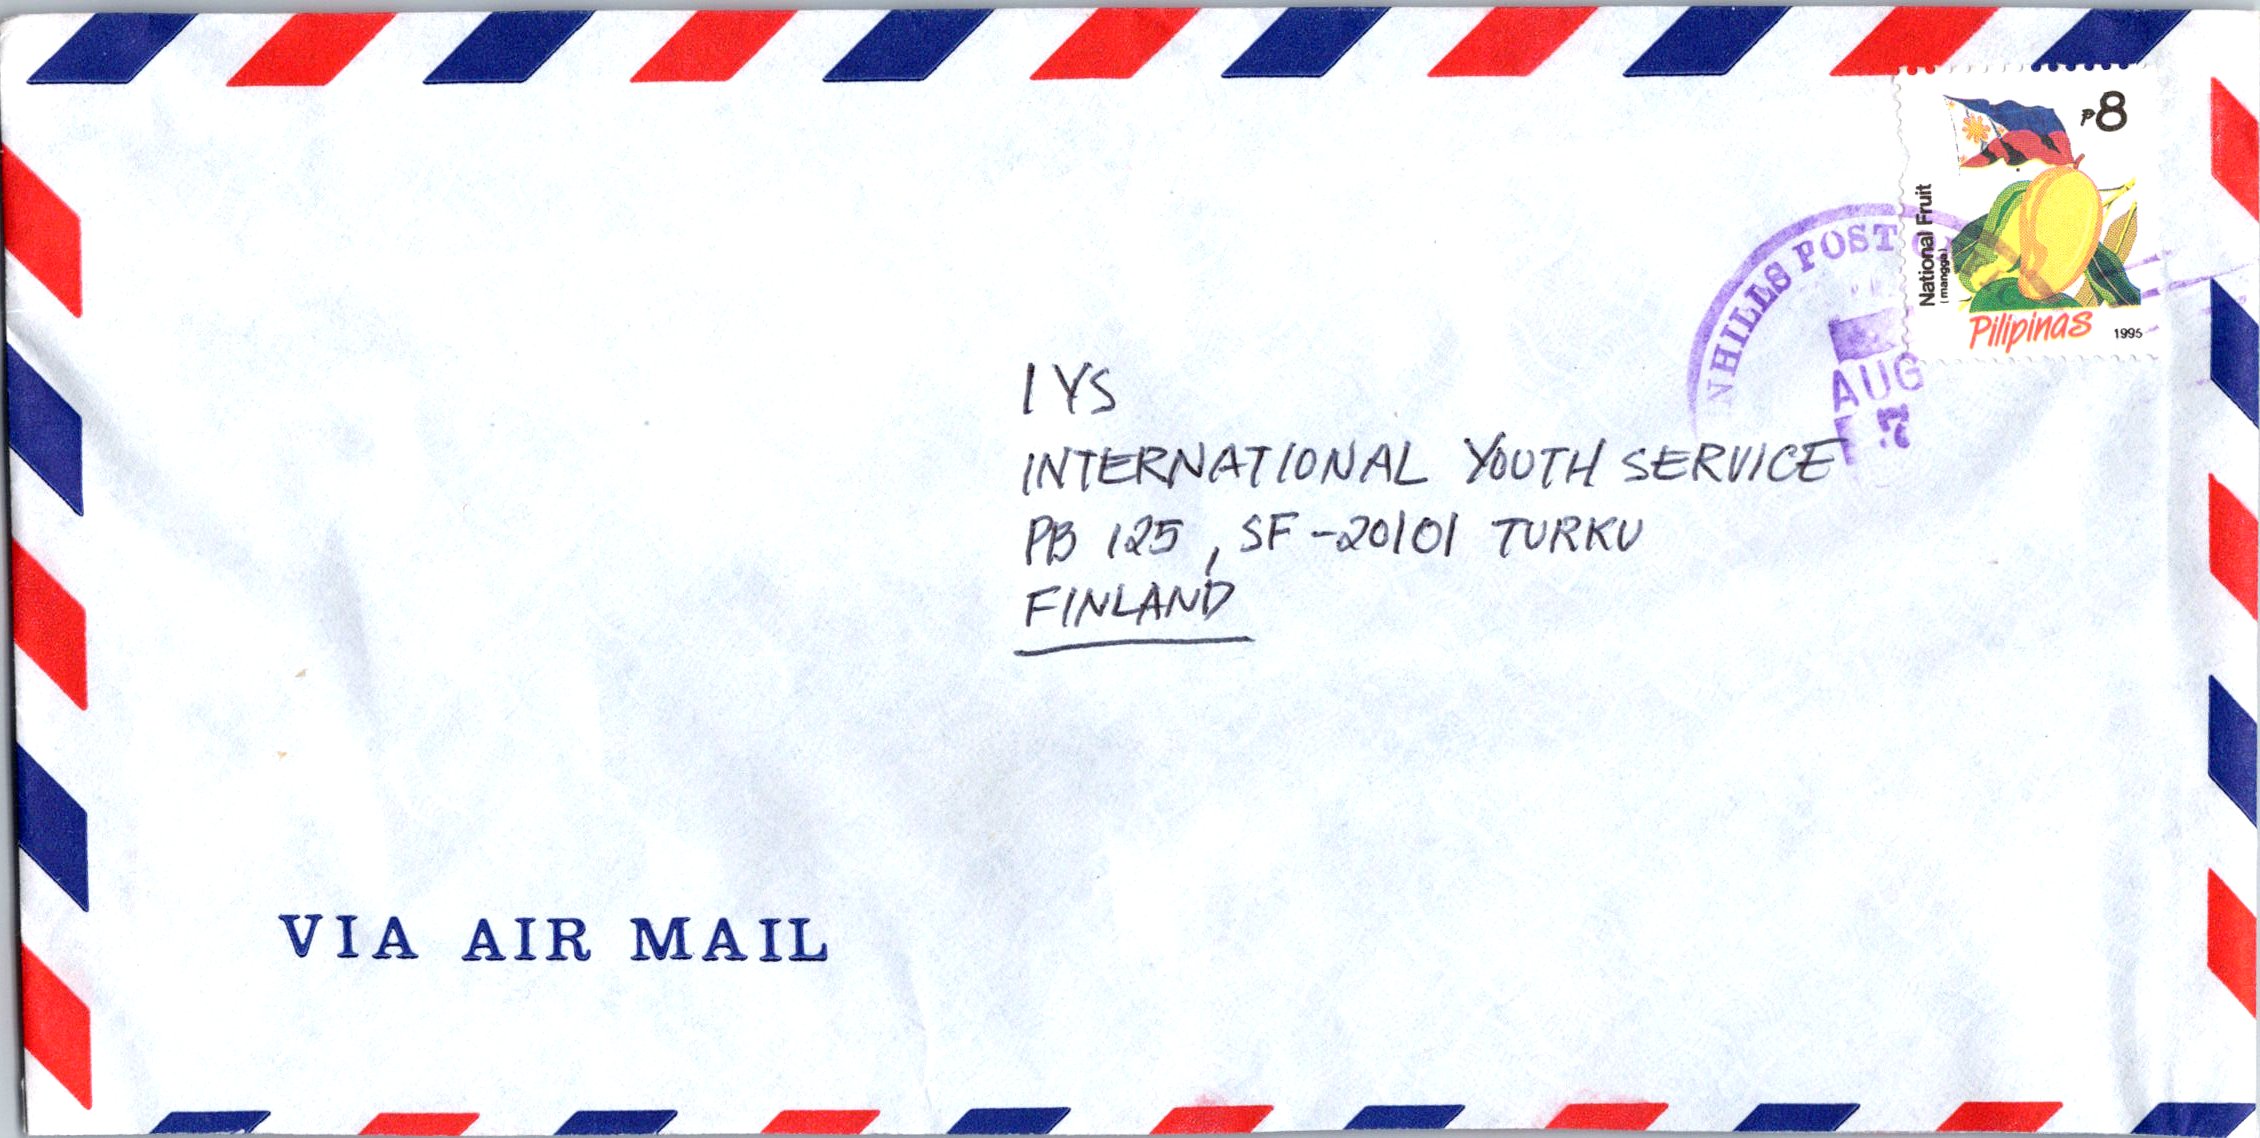 ₱8
National Fruit
(mangga)
Pilipinas 1995
POST
AUG
7
IYS
INTERNATIONAL YOUTH SERVICE
PB 125, SF-20101 TURKU
FINLAND
VIA AIR MAIL